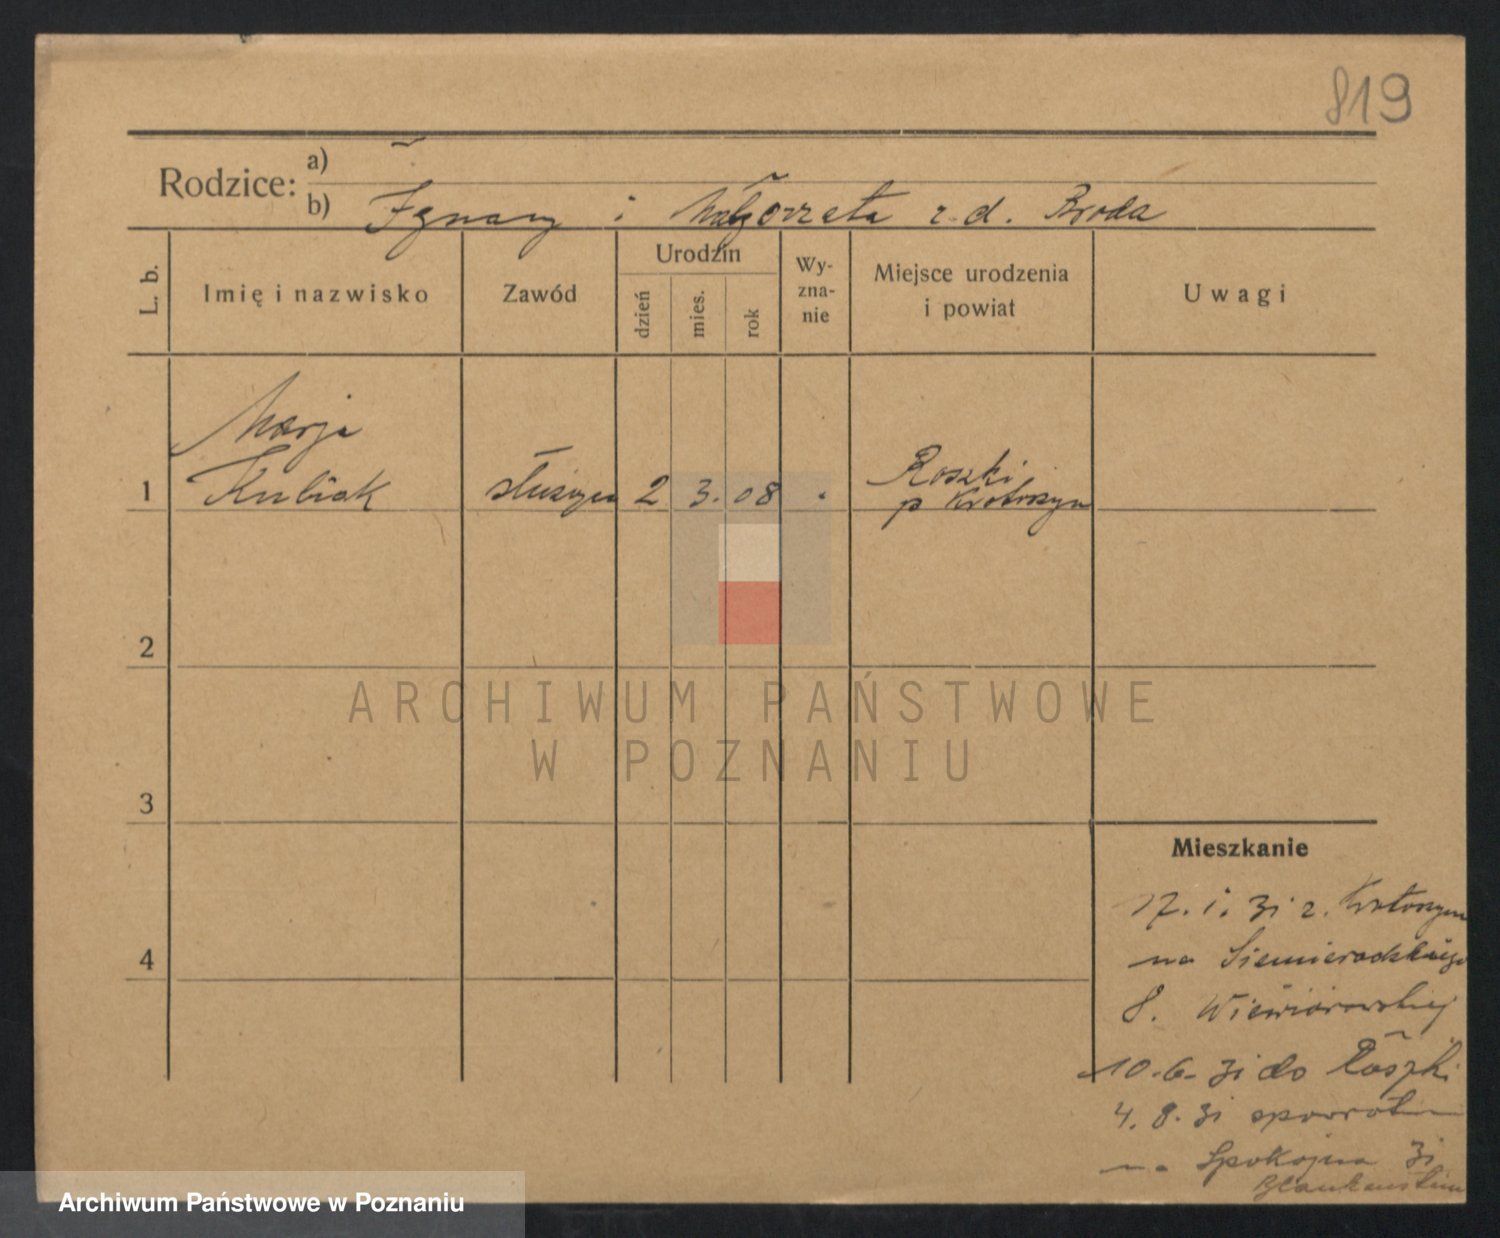 819
Rodzice: a)
b) Ignacy i Małgorzata z d. Broda
L. b.
Imię i nazwisko
Zawód
Urodzin
dzień
mies.
rok
Wy-
zna-
nie
Miejsce urodzenia
i powiat
Uwagi
Marja
1 Kubiak służąca 2 3. 08 Roszki
p Krotoszyn
2
3
4
ARCHIWUM PAŃSTWOWE
W POZNANIU
Mieszkanie
17. 1. 31 z. Krotoszyna
na Siemieradzkiego
8. Wiewiórowskiej
10.6. 31 do Roszki
4. 8. 31 spowrotem
na Spokojna 31
Archiwum Państwowe w Poznaniu